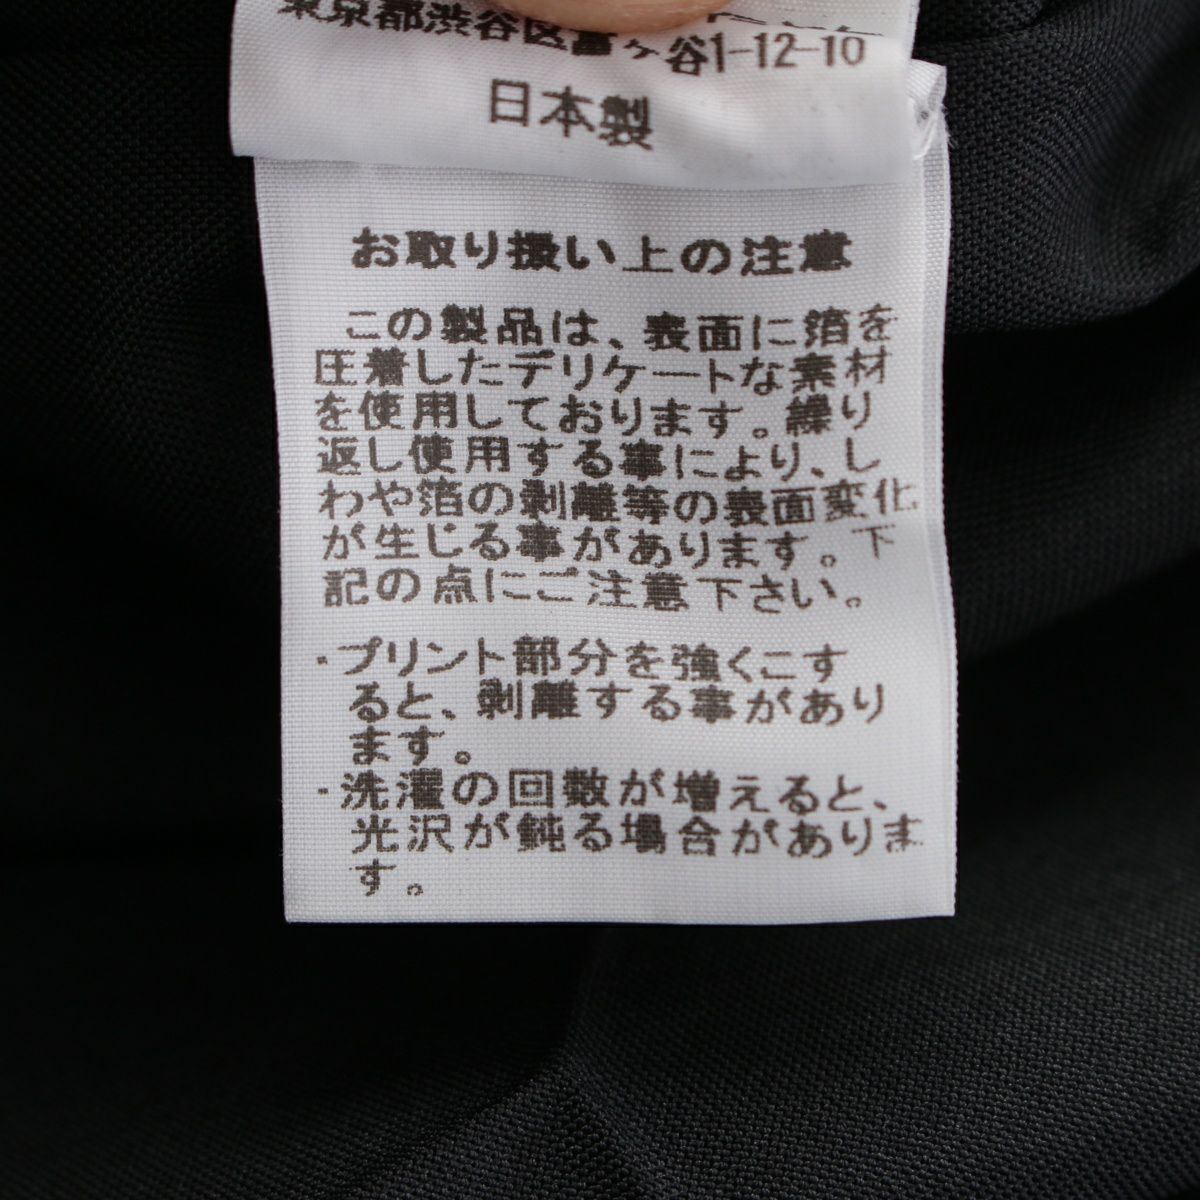 東京都渋谷区富ヶ谷1-12-10
日本製
お取り扱い上の注意
この製品は、表面に箔を
圧着したデリケートな素材
を使用しております。繰り
返し使用する事により、し
わや箔の剥離等の表面変化
が生じる事があります。下
記の点にご注意下さい。
・プリント部分を強くこす
ると、剥離する事があり
ます。
・洗濯の回数が増えると、
光沢が鈍る場合がありま
す。